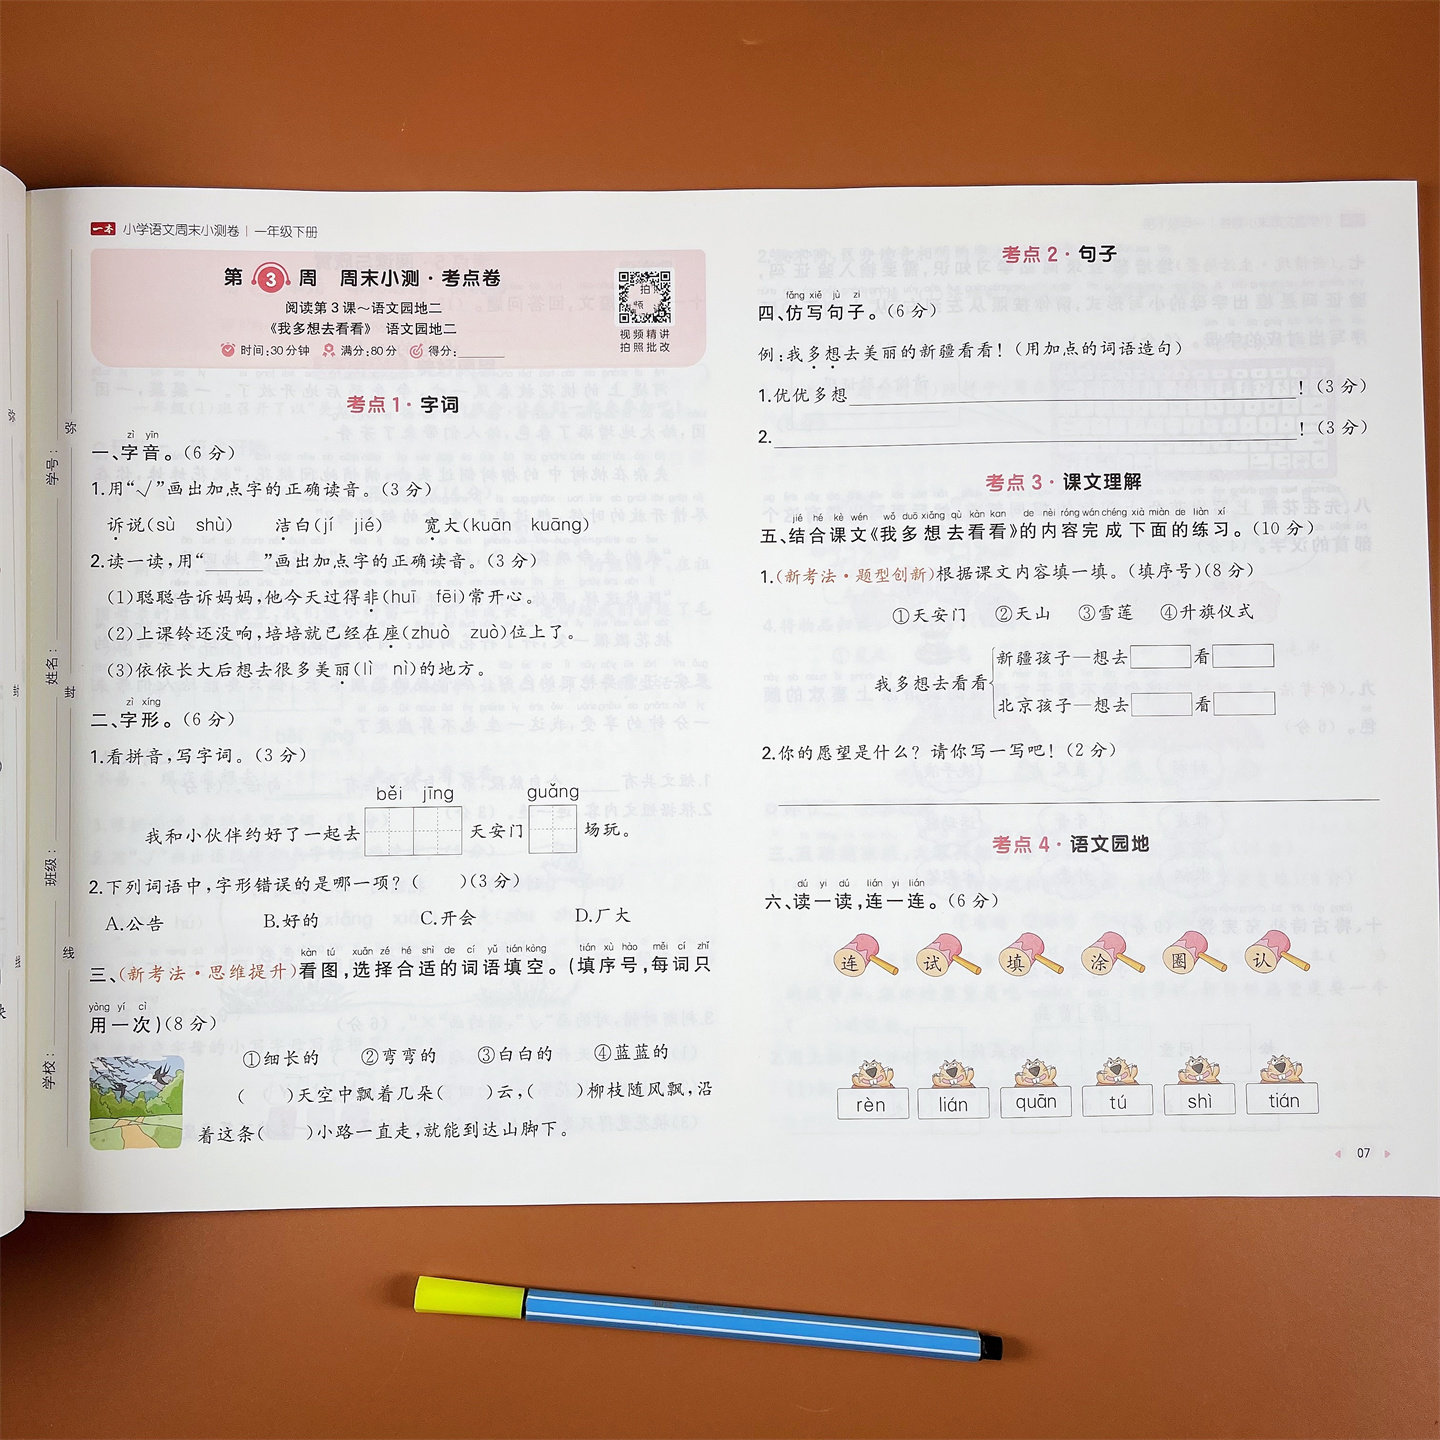 一本 小学语文周末小测卷 | 一年级下册
第3周 周末小测·考点卷
阅读第3课～语文园地二
《我多想去看看》 语文园地二
时间:30分钟 满分:80分 得分:
视频精讲
拍照批改
学号:
姓名:
班级:
学校:
弥
封
线
考点1·字词
zì yīn
一、字音。(6分)
1.用“√”画出加点字的正确读音。(3分)
诉说(sù shù) 洁白(jí jié) 宽大(kuān kuāng)
2.读一读,用“______”画出加点字的正确读音。(3分)
(1)聪聪告诉妈妈,他今天过得非(huī fēi)常开心。
(2)上课铃还没响,培培就已经在座(zhuò zuò)位上了。
(3)依依长大后想去很多美丽(lì nì)的地方。
zì xíng
二、字形。(6分)
1.看拼音,写字词。(3分)
běi jīng guǎng
我和小伙伴约好了一起去 天安门 场玩。
2.下列词语中,字形错误的是哪一项? ( )(3分)
A.公告 B.好的 C.开会 D.厂大
kàn tú xuǎn zé hé shì de cí yǔ tián kòng tián xù hào měi cí zhǐ
三、(新考法·思维提升)看图,选择合适的词语填空。(填序号,每词只
yòng yí cì
用一次)(8分)
①细长的 ②弯弯的 ③白白的 ④蓝蓝的
( )天空中飘着几朵( )云,( )柳枝随风飘,沿
着这条( )小路一直走,就能到达山脚下。
考点2·句子
fǎng xiě jù zi
四、仿写句子。(6分)
例:我多想去美丽的新疆看看! (用加点的词语造句)
1.优优多想______! (3分)
2.______! (3分)
考点3·课文理解
jié hé kè wén wǒ duō xiǎng qù kàn kan de nèi róng wán chéng xià miàn de liàn xí
五、结合课文《我多想去看看》的内容完成下面的练习。(10分)
1.(新考法·题型创新)根据课文内容填一填。(填序号)(8分)
①天安门 ②天山 ③雪莲 ④升旗仪式
我多想去看看
新疆孩子—想去 看
北京孩子—想去 看
2.你的愿望是什么? 请你写一写吧! (2分)
考点4·语文园地
dú yi dú lián yi lián
六、读一读,连一连。(6分)
连 试 填 涂 圈 认
rèn lián quān tú shì tián
07